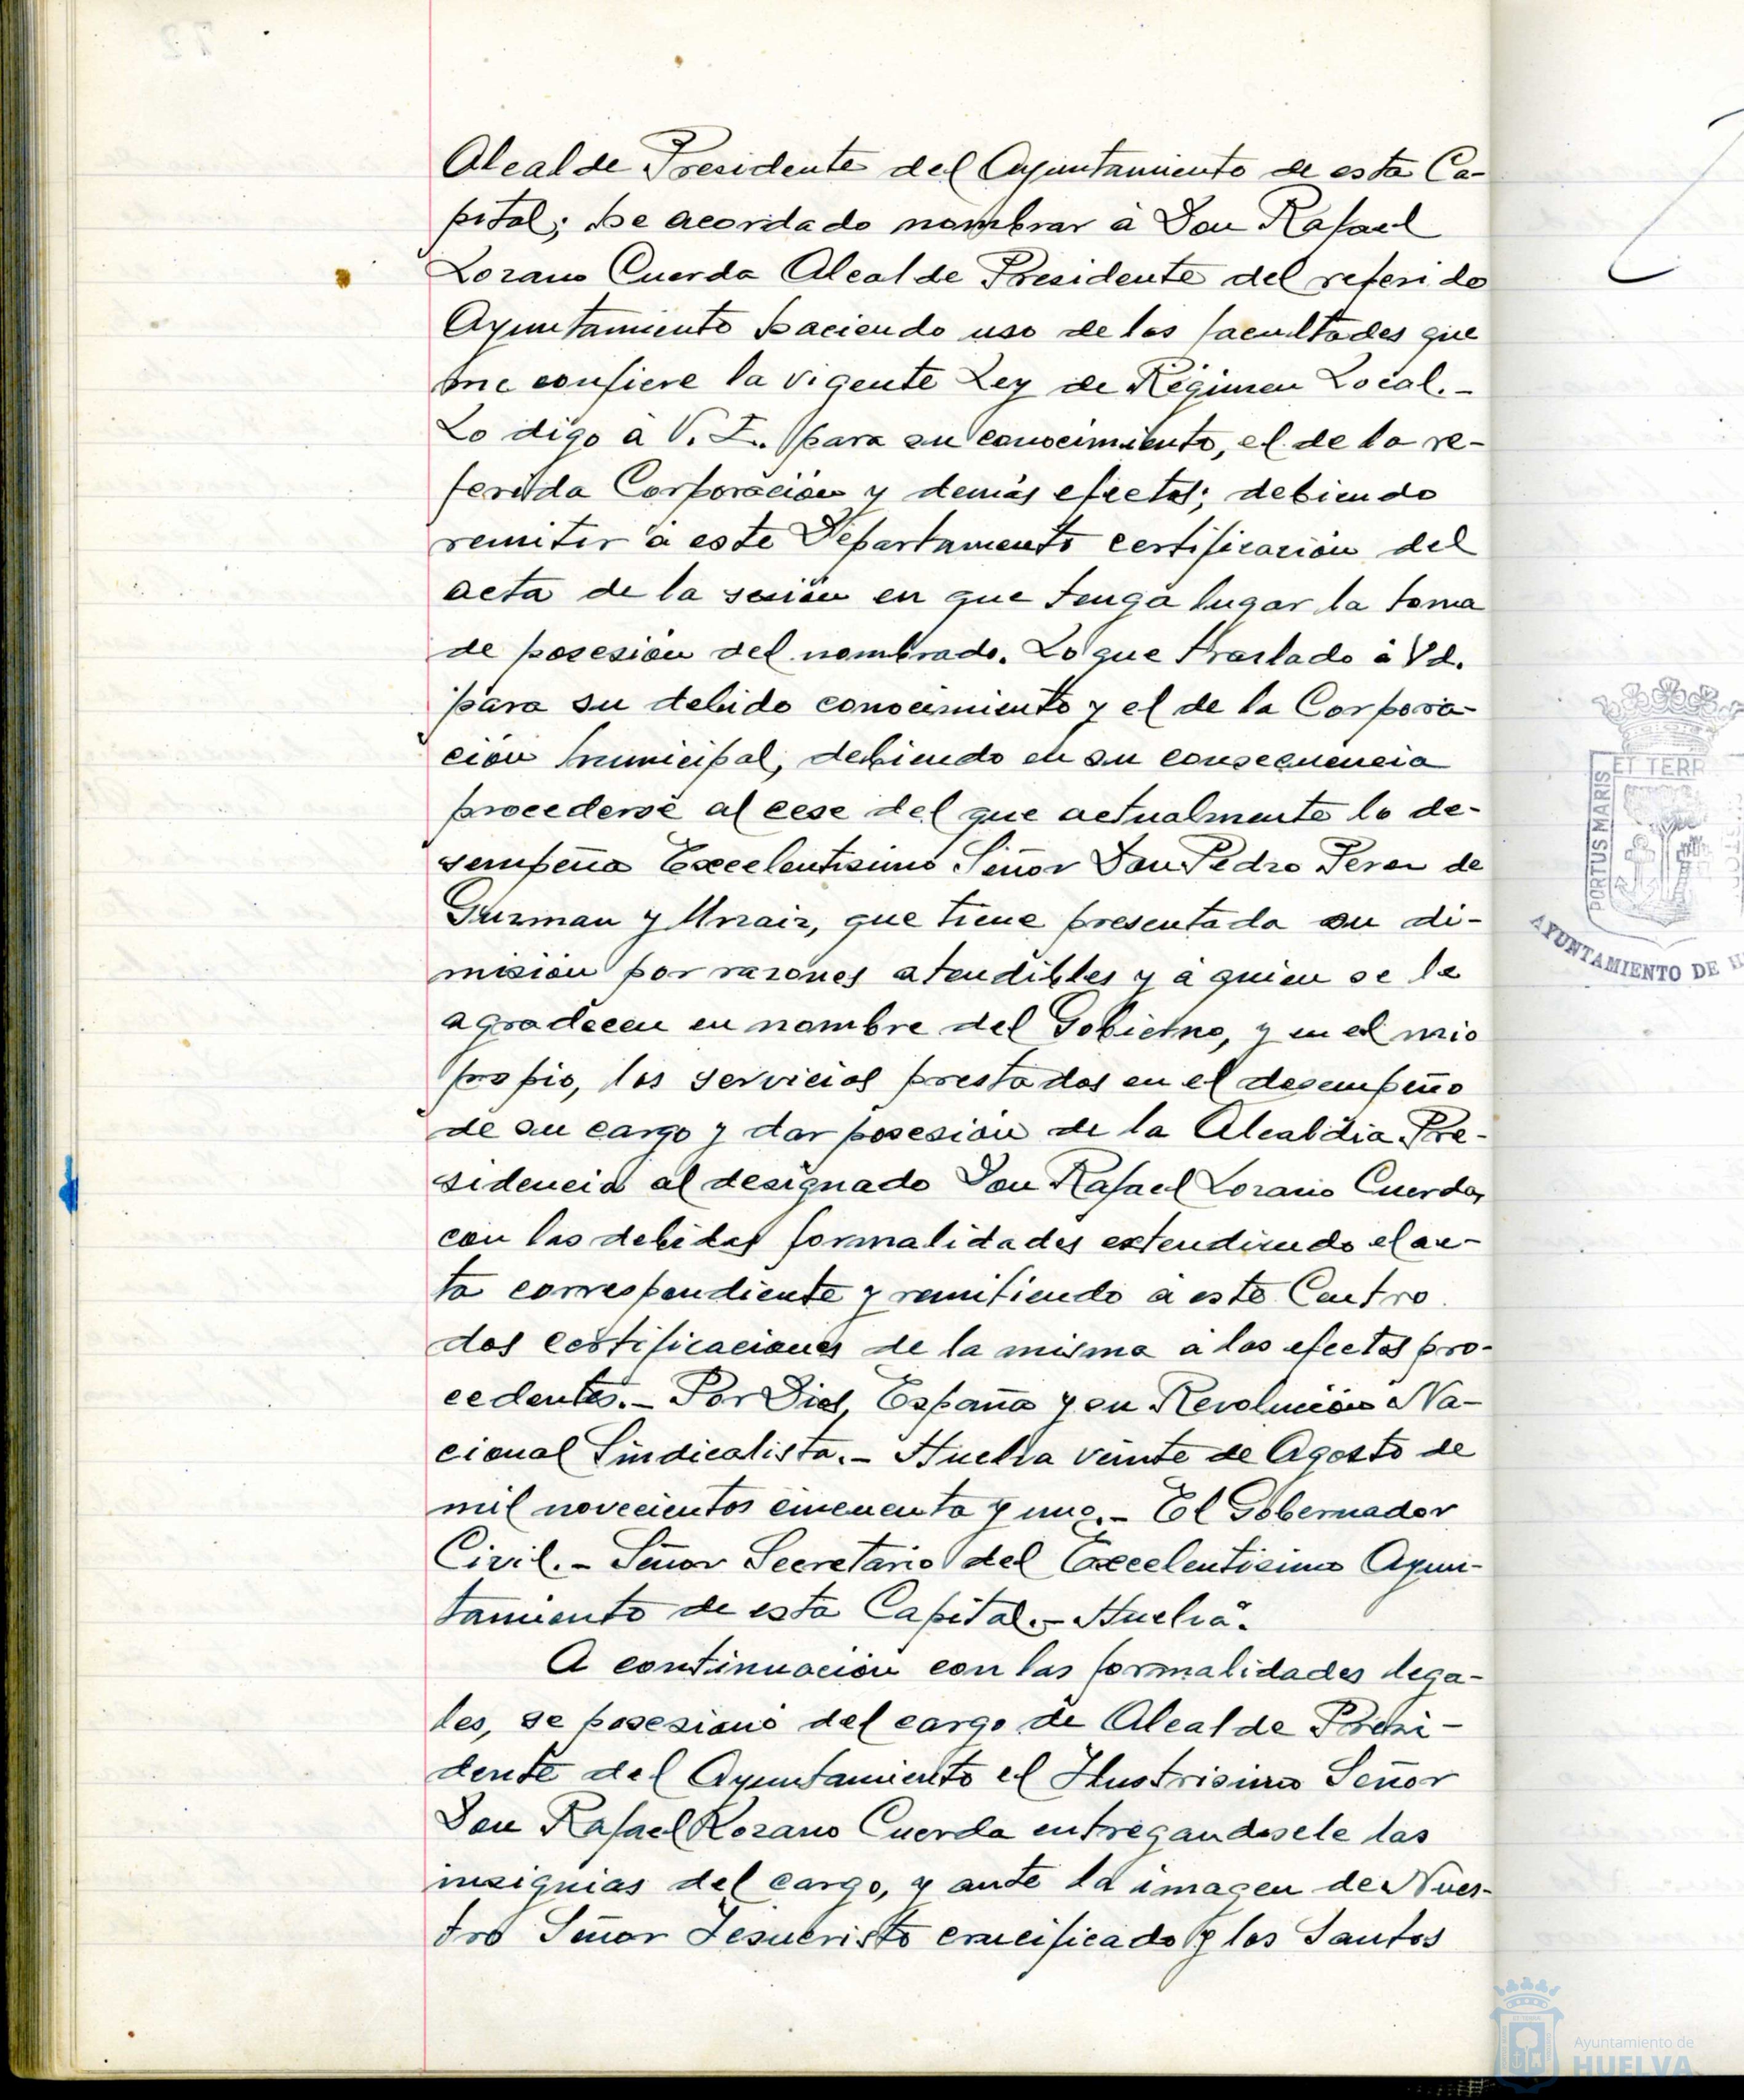 Alcalde Presidente del Ayuntamiento de esta Ca-
pital; he acordado nombrar á Don Rafael
Lozano Cuerda Alcalde Presidente del referido
Ayuntamiento haciendo uso de las facultades que
me confiere la vigente Ley de Régimen Local.-
Lo digo á V. I. para su conocimiento, el de la re-
ferida Corporación y demás efectos; debiendo
remitir á este Departamento certificación del
acta de la sesión en que tenga lugar la toma
de posesión del nombrado. Lo que traslado á Vd.
para su debido conocimiento y el de la Corpora-
ción municipal, debiendo en su consecuencia
procederse al cese del que actualmente lo de-
sempeña Excelentisimo Señor Don Pedro Perez de
Guzman y Urzaiz, que tiene presentada su di-
misión por razones atendibles y á quien se le
agradecen en nombre del Gobierno, y en el mio
propio, los servicios prestados en el desempeño
de su cargo y dar posesión de la Alcaldia Pre-
sidencia al designado Don Rafael Lozano Cuerda,
con las debidas formalidades extendiendo el ac-
ta correspondiente y remitiendo á este Centro
dos certificaciones de la misma á los efectos pro-
cedentes.- Por Dios, España y su Revolución Na-
cional Sindicalista.- Huelva veinte de Agosto de
mil novecientos cincuenta y uno.- El Gobernador
Civil.- Señor Secretario del Excelentisimo Ayun-
tamiento de esta Capital.- Huelva".
A continuación con las formalidades lega-
les, se posesionó del cargo de Alcalde Presi-
dente del Ayuntamiento el Ilustrisimo Señor
Don Rafael Lozano Cuerda entregandosele las
insignias del cargo, y ante la imagen de Nues-
tro Señor Jesucristo crucificado y los Santos
ET TERR
PORTUS MARIS
AYUNTAMIENTO DE H
Ayuntamiento de
HUELVA